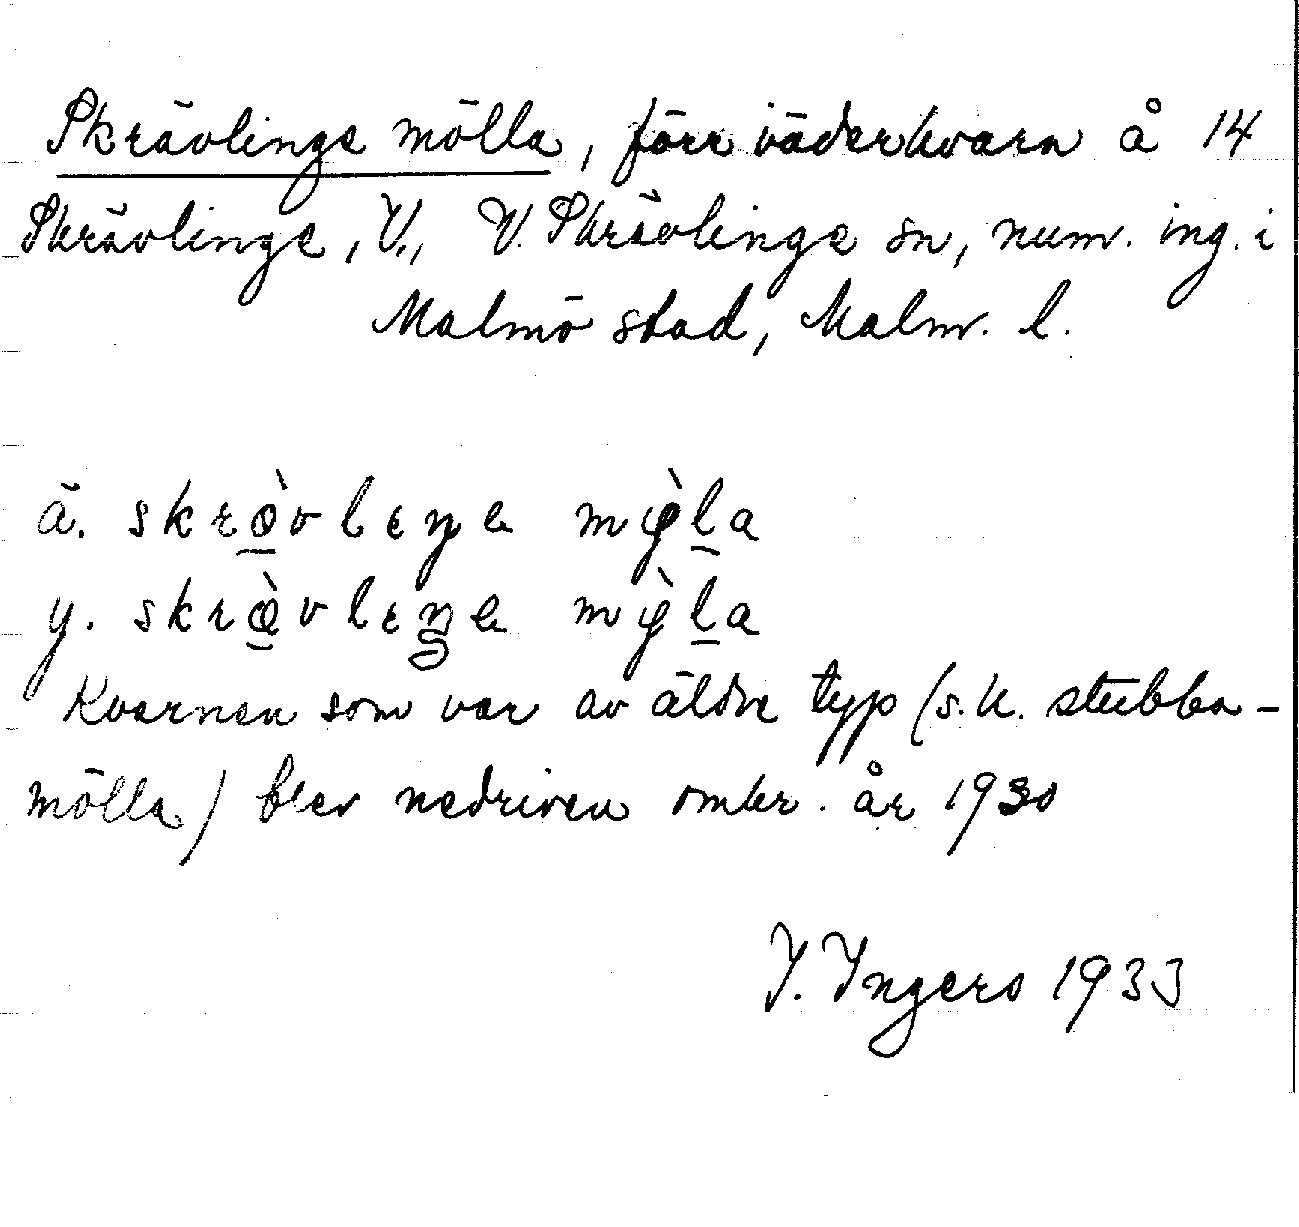 Skrävlinge mölla, förr väderkvarn å 14
Skrävlinge, V., V. Skrävlinge sn, num. ing. i
Malmö stad, Malm. l.
ä. skræ̠̀vlɛŋe mø̀l̠a
y. skræ̠̀vlɛŋe mø̀l̠a
Kvarnen som var av äldre typ (s.k. stubba-
mölla) blev nedriven omkr. år 1930
I. Ingers 1933